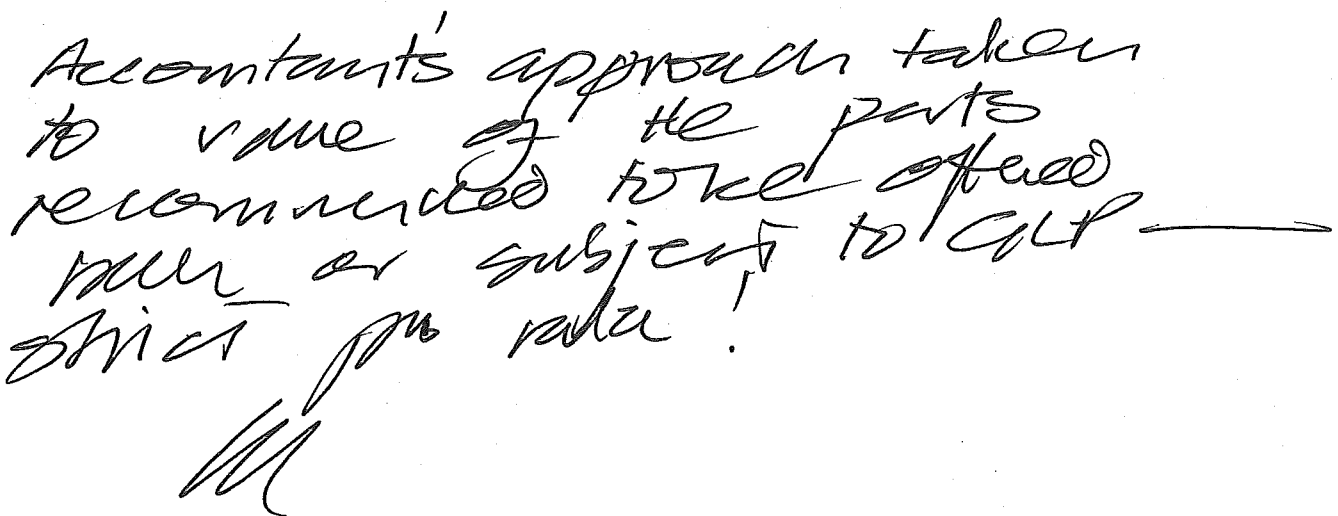 Accountant's approach taken
to value of the parts
recommended to be offered
or subject to GLP —
strict pro rata!